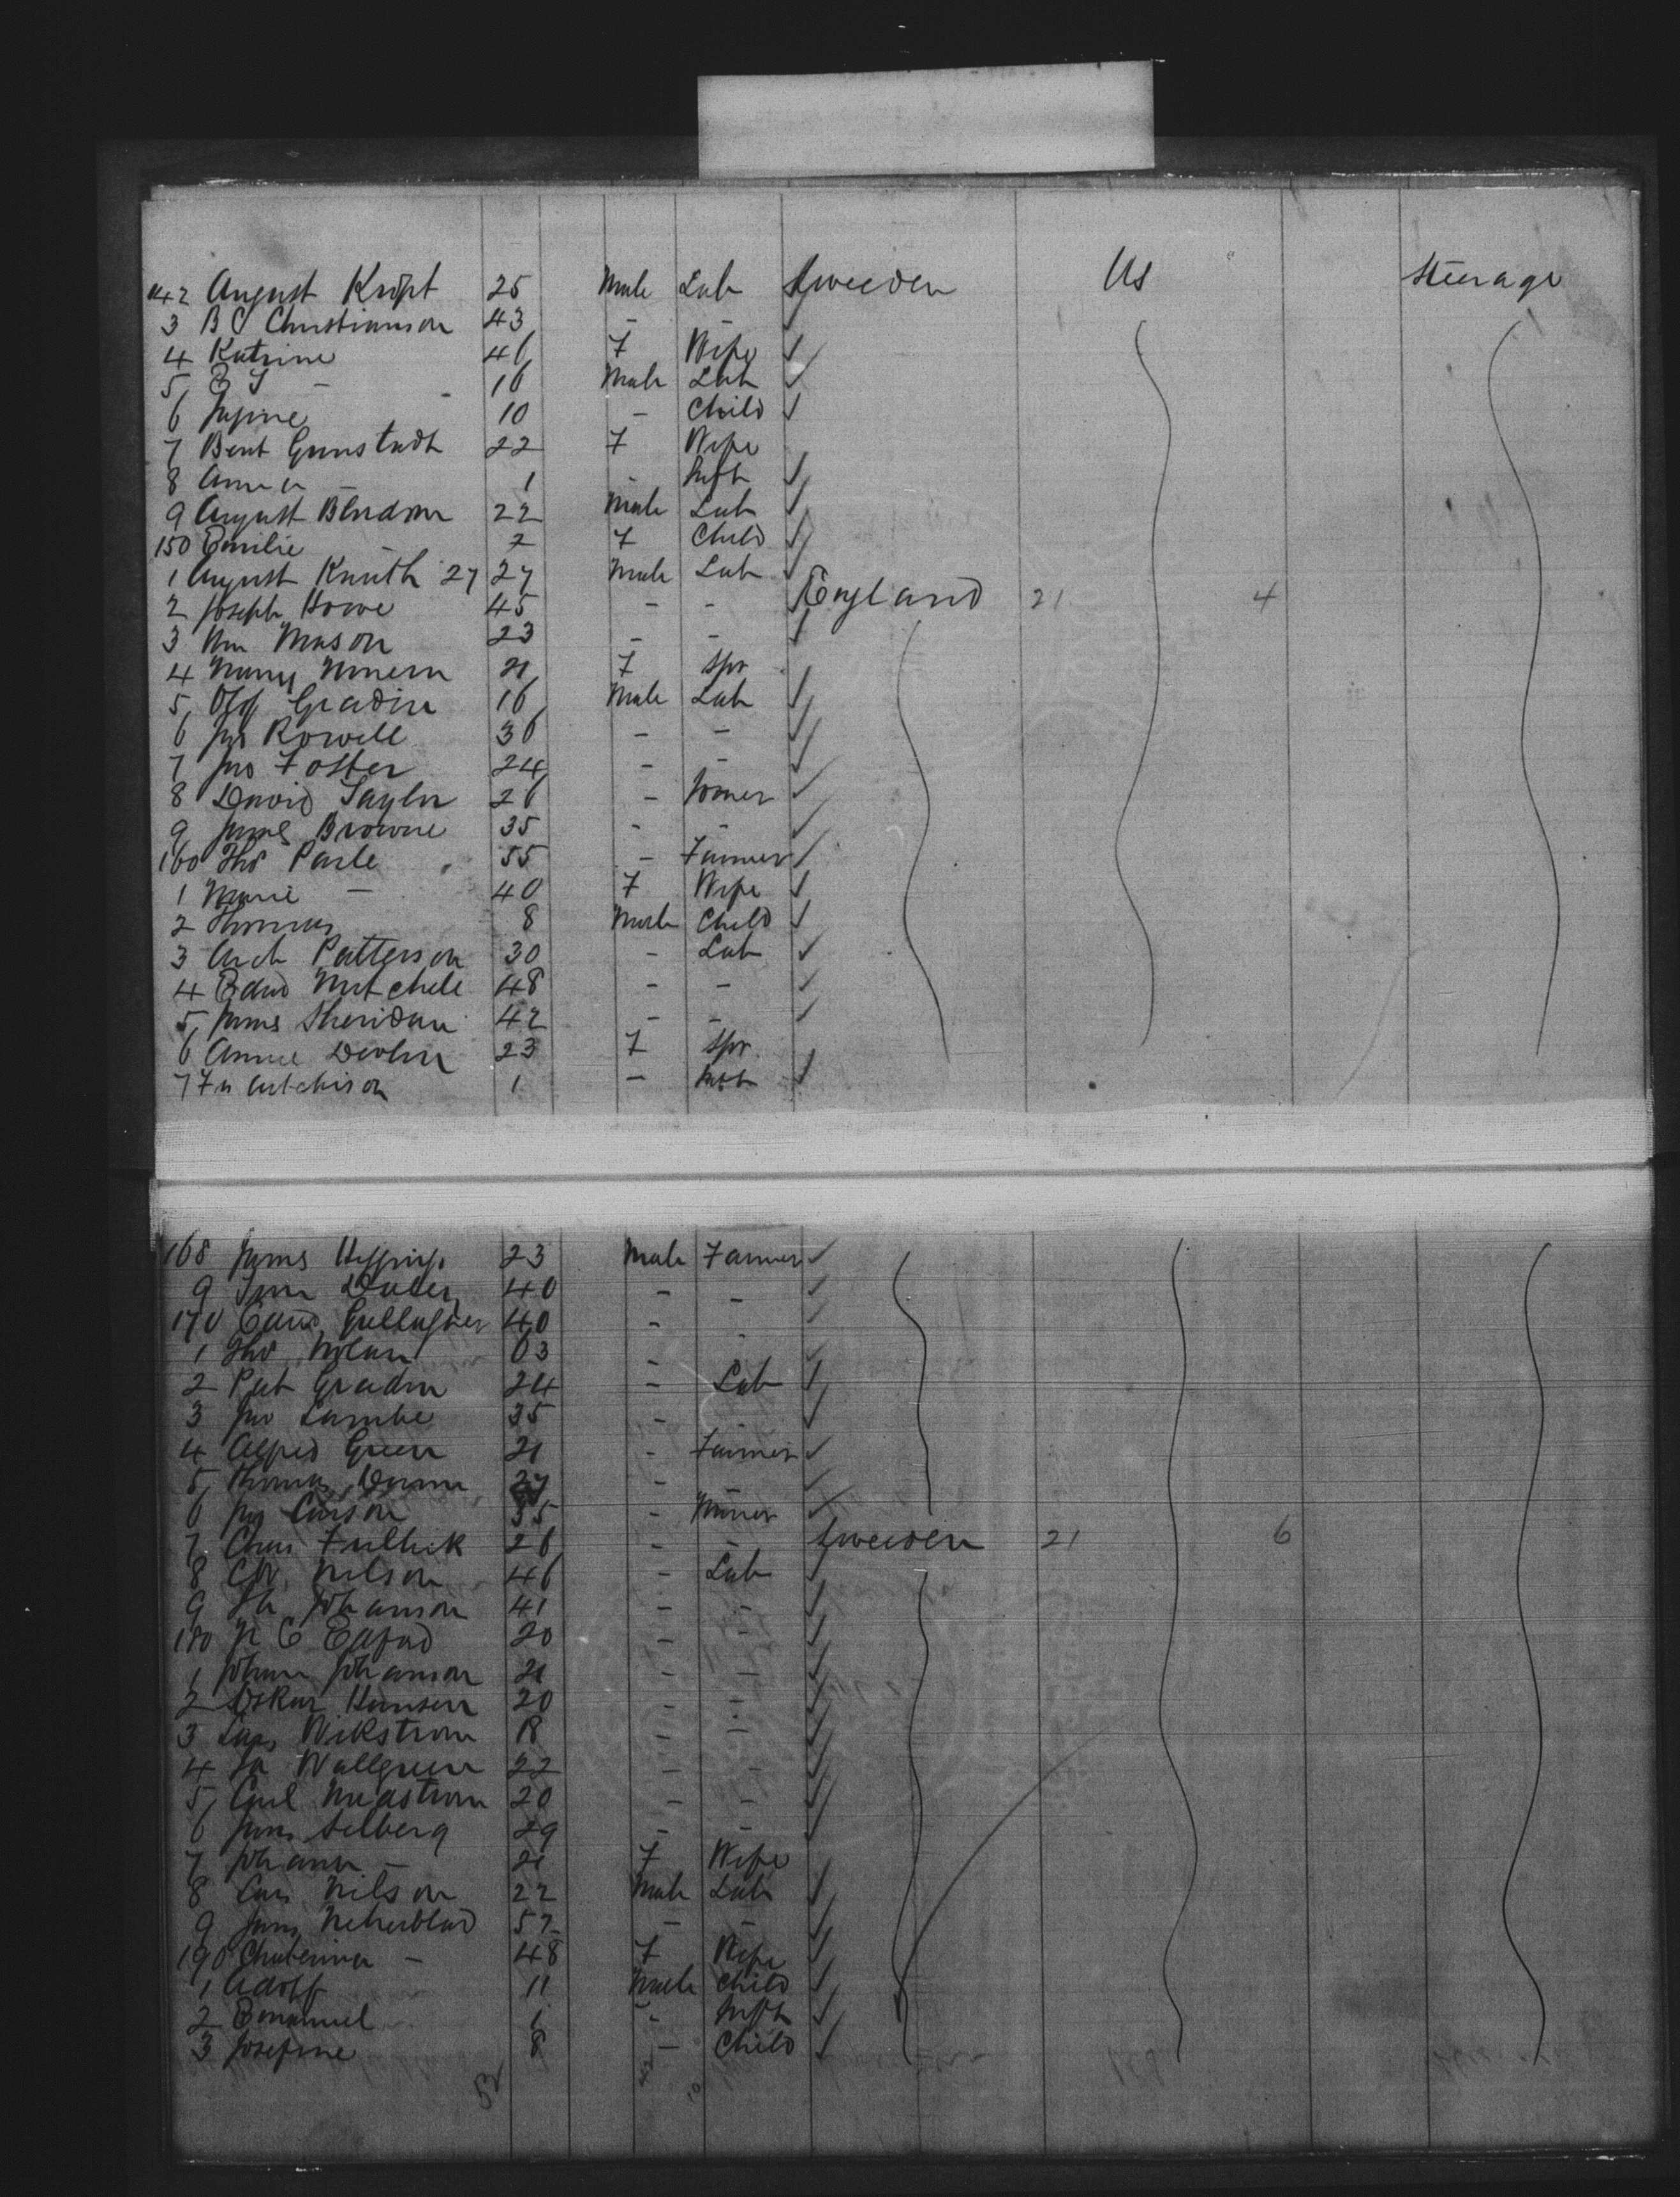 142 August Kropt 25 Male Lab Sweeden Us Steerage
3 B C Christianson 43 - -
4 Katrine 46 F Wife
5 - 16 Male Lab
6 10 - Child
7 Bent Gunstadt 22 F Wife
8 Anna - 1 - Inft
9 August 22 Male Lab
150 Emilie 2 F Child
1 August Knuth 27 27 Male Lab
2 Joseph Howe 45 - - England 21 4
3 Wm Mason 23 - -
4 21 F Spr
5 Gradin 16 Male Lab
6 Jno Rowell 36 - -
7 Jno Foster 24 - -
8 David Taylor 26 - 
9 James Browne 35 - -
160 Thos Parle 55 - Farmer
1 Marie - 40 F Wife
2 Thomas 8 Male Child
3 Arch Patterson 30 - Lab
4 Edwd Mitchele 48 - -
5 James Sheridan 42 - -
6 Annie Devlin 23 F Spr
7 Hutchison 1 - Inft
168 James 23 Male Farmer
9 40 - -
170 Edwd Gallagher 40 - -
1 Thos Nolan 63 -
2 Pat 24 - Lab
3 Jno Lambe 35 -
4 Alfred Green 21 - Farmer
5 Thomas 27 - -
6 Jas Carson 35 - Miner
7 Chas 26 - - Sweeden 21 6
8 Nilson 46 - Lab
9 Johanson 41 - -
180 N C 20 - -
1 Johan Johanson 21 - -
2 Oskar Hansen 20 - -
3 Lars Wikstrom 18 - -
4 Wallgreen 22 - -
5 Carl 20 - -
6 Selberg 29 - -
7 Johana - 21 F Wife
8 Lars Nilson 22 Male Lab
9 57 - -
190 - 48 F Wife
1 Adolf 11 Male Child
2 Emanuel 1 - Inft
3 Josefine 8 - Child
52 42 10